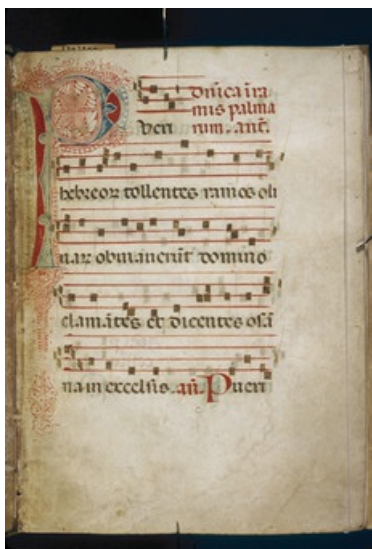 Dnīca ī ra
mis palma
Pueri rum. an̄.
hebreoꝝ tollentes ramos oli
uaꝝ obuiauerūt domino
clamātes et dicentes osā
na in excelsis. an̄. Pueri